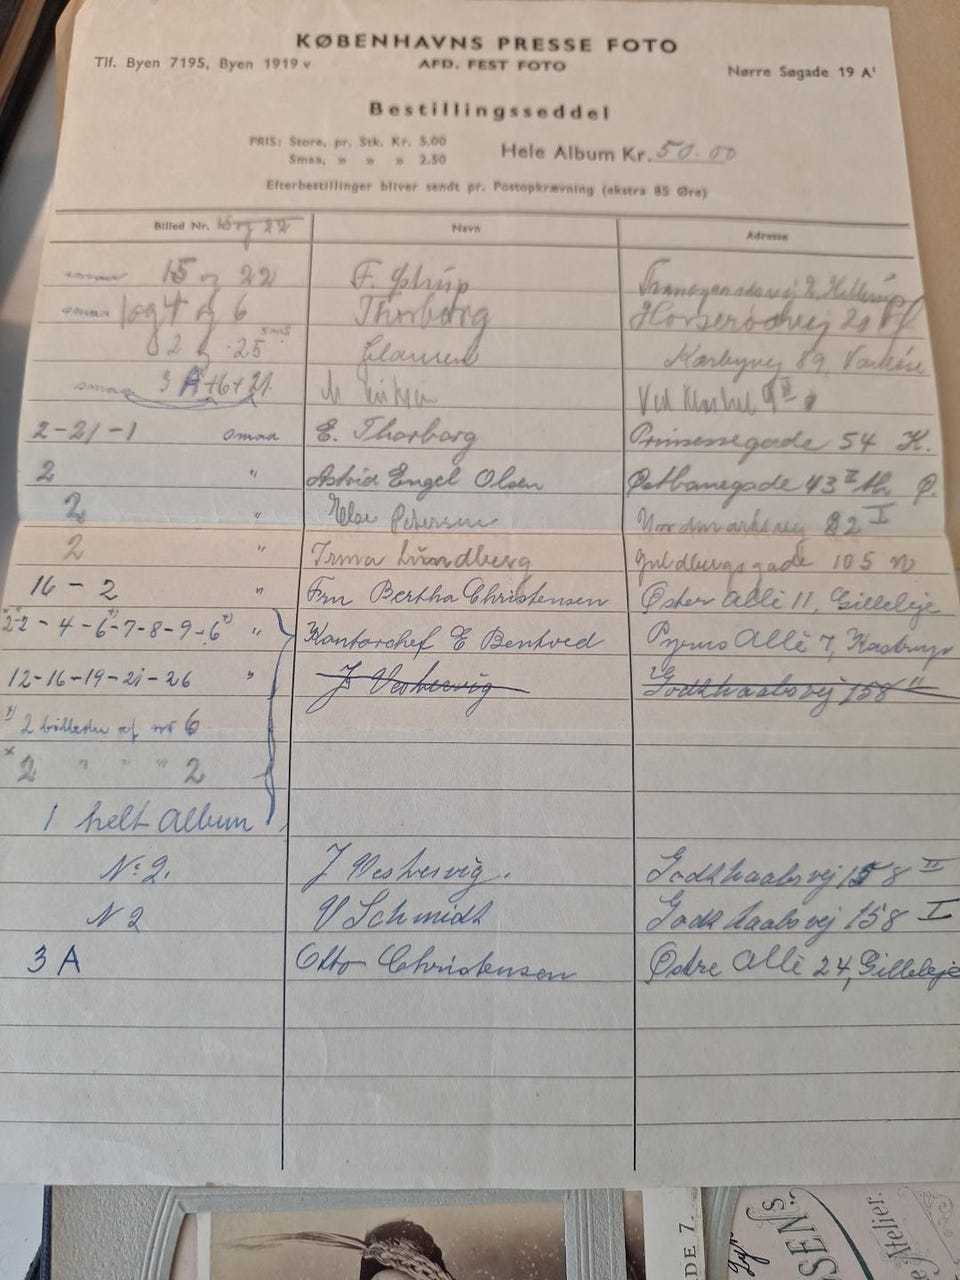 KØBENHAVNS PRESSE FOTO
Tlf. Byen 7195, Byen 1919 v AFD. FEST FOTO Nørre Søgade 19 A¹
Bestillingsseddel
PRIS: Store, pr. Stk. Kr. 5.00
Smaa, » » » 2.50
Hele Album Kr. 50.00
Efterbestillinger bliver sendt pr. Postopkrævning (ekstra 85 Øre)
Billed Nr. 15 og 22 Navn Adresse
smaa 15 og 22 F. Ystrup 2 Hellerup
smaa 1 og 4 og 6 Thorborg Horserødvej 20
2 25 små Clausen 89, Vanløse
smaa 3 A+6+21 Ved
2-21-1 smaa E. Thorborg Prinsessegade 54 K.
2 " Astrid Engel Olsen Østbanegade 43 II th Ø.
2 " Else Petersen Nordmarksvej 82 I
2 " Irma Lundberg Guldbergsgade 105 N
16 - 2 " Fru Bertha Christensen Øster Allé 11, Gilleleje
2-4-6-7-8-9-6 " Kontorchef E Bentved Allé 7, Kastrup
12-16-19-21-26 " J Vestervig Godthaabsvej 158 II
2 billeder af nr 6
x 2 " " " 2
1 helt Album
No 2. J Vestervig. Godthaabsvej 158 II
N 2 V Schmidt Godthaabsvej 158 I
3 A Otto Christensen Østre Allé 24, Gilleleje
DE 7.
SENS
Atelier.